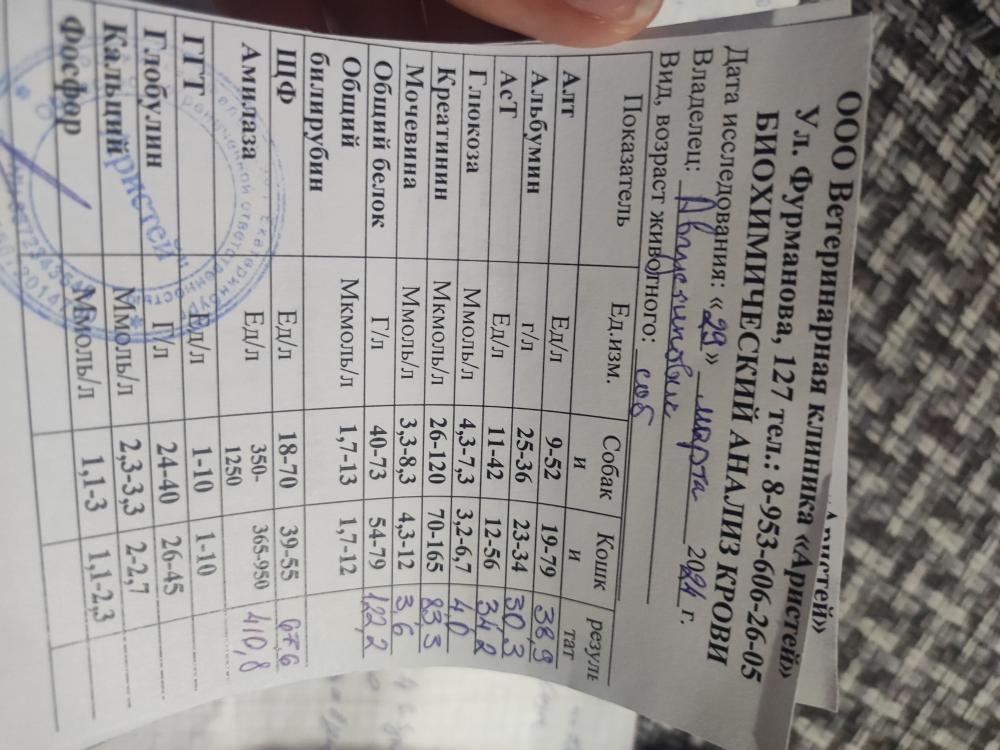 ООО Ветеринарная клиника «Аристей»
Ул. Фурманова, 127 тел.: 8-953-606-26-05
БИОХИМИЧЕСКИЙ АНАЛИЗ КРОВИ
Дата исследования: «29» марта 2024 г.
Владелец:
Вид, возраст животного: соб
Показатель Ед.изм. Собаки Кошки результат
Алт Ед/л 9-52 19-79 38,9
Альбумин г/л 25-36 23-34 30,3
АсТ Ед/л 11-42 12-56 34,2
Глюкоза Ммоль/л 4,3-7,3 3,2-6,7 4,0
Креатинин Мкмоль/л 26-120 70-165 83,3
Мочевина Ммоль/л 3,3-8,3 4,3-12 3,6
Общий белок Г/л 40-73 54-79 122,2
Общий билирубин Мкмоль/л 1,7-13 1,7-12
ЩФ Ед/л 18-70 39-55 67,6
Амилаза Ед/л 350-1250 365-950 410,8
ГГТ Ед/л 1-10 1-10
Глобулин Г/л 24-40 26-45
Кальций Ммоль/л 2,3-3,3 2-2,7
Фосфор Ммоль/л 1,1-3 1,1-2,3
Аристей»